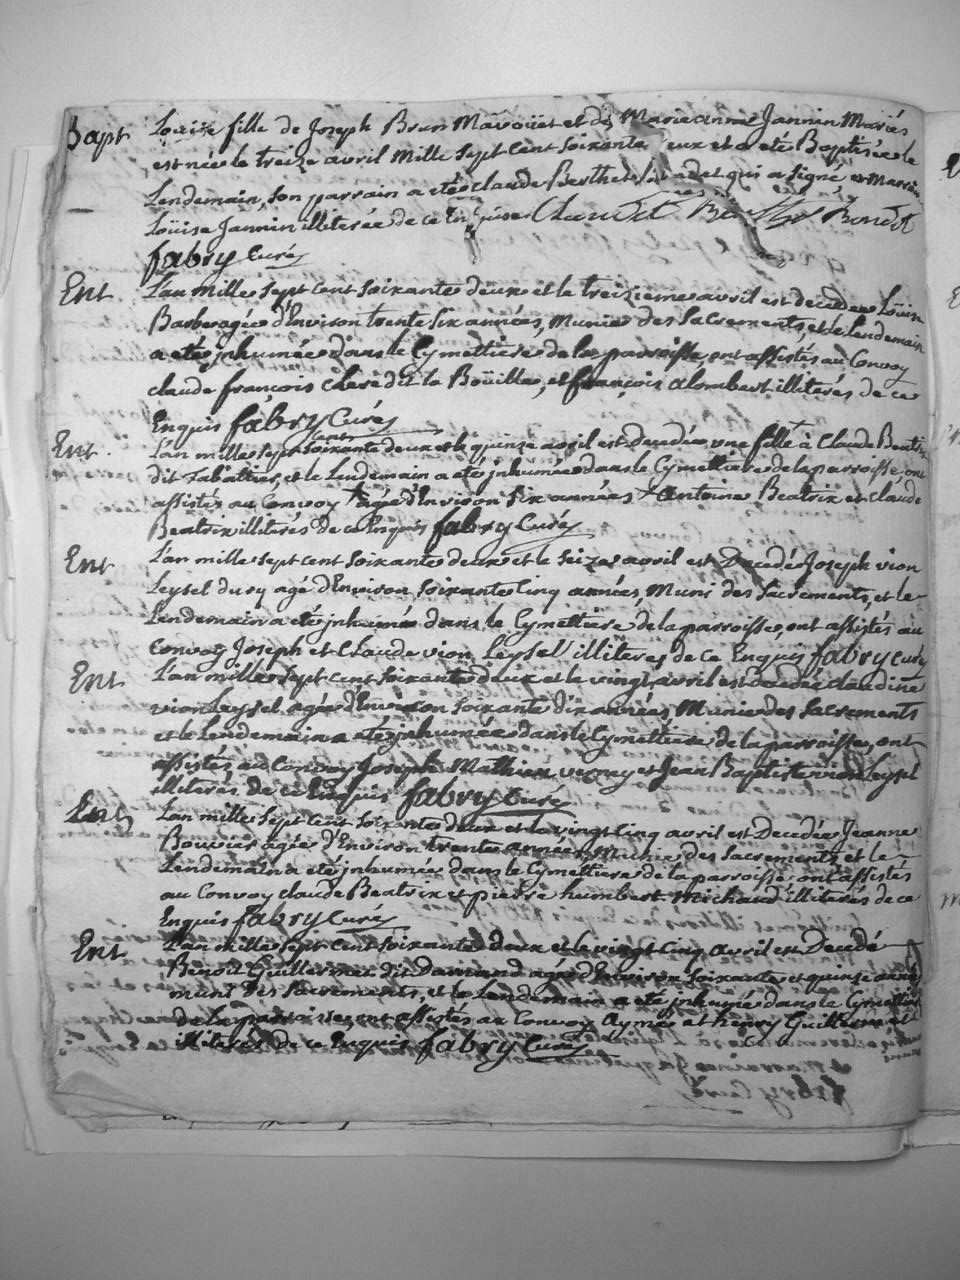 Bapt Louise fille de Joseph Brun Marouët et de Marie anne Jannin Mariés
est née le treize avril mille sept cent soixante deux et a été Baptisée le
Lendemain, son parrain a été claude Berthet qui a signé et Marraine
Loüise Jannin illiterée de ce Enquise Claude Benoit
fabry Curé
Ent L'an mille sept cent soixante deux et le treizieme avril est decedée Loüise
Barbe agée d'Environ trente six années, munie des Sacrements, et le Lendemain
a eté inhumée dans le Cymettiere de la parroisse, ont assistés au Convoy
claude françois Clere dit la Boüille, et françois alombert illiterés de ce
Enquis fabry Curé
Ent L'an mille sept cent soixante deux et le quinze avril est decedée une fille à Claude Beatrix
dit et le Lendemain a eté inhumée dans le Cymettiere de la parroisse ont
assistés au Convoy + agée d'Environ six années + Antoine Beatrix et claude
Beatrix illiterés de ce Enquis fabry Curé
Ent L'an mille sept cent soixante deux et le seize avril est Decedé Joseph vion
Leysel du ry agé d'Environ soixante Cinq années, Muni des Sacrements, et le
Lendemain a eté inhumé dans le Cymettiere de la parroisse, ont assistés au
Convoy Joseph et Claude vion Leysel illiterés de ce Enquis fabry curé
Ent L'an mille sept cent soixante deux et le vingt avril est Decedée claudine
vion Leysel agée d'Environ soixante dix années, Munie des Sacrements
et le Lendemain a eté inhumée dans le Cymettiere de la parroisse, ont
assistés au Convoy Joseph Mathieu vernay et Jean Baptiste vion Leysel
illiterés de ce Enquis fabry Curé
Ent L'an mille sept cent soixante deux et le vingt Cinq avril est Decedée Jeanne
Bouvier agée d'Environ trente années, Munie des Sacrements et le
Lendemain a eté inhumée dans le Cymettiere de la parroisse ont assistés
au Convoy claude Beatrix et pierre humbert Michaud illiterés de ce
Enquis fabry Curé
Ent L'an mille sept cent soixante deux et le vingt Cinq avril est Decedé
Benoit Guillermet dit Damand agé d'Environ soixante et quinze années
muni des Sacrements, et le Lendemain a eté inhumé dans le Cymettiere
de la parroisse, ont assistés au Convoy Aymé et henry Guillermet
illiterés de ce Enquis fabry Curé